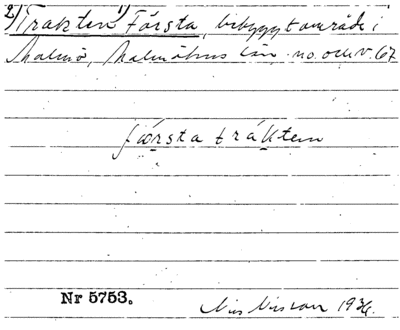 2) Trakten 1) Första, bebyggt område i
Malmö, Malmöhus län. no. o. u. v. 67
första trákten
Nr 5753.
Nils Nilsson 1936.